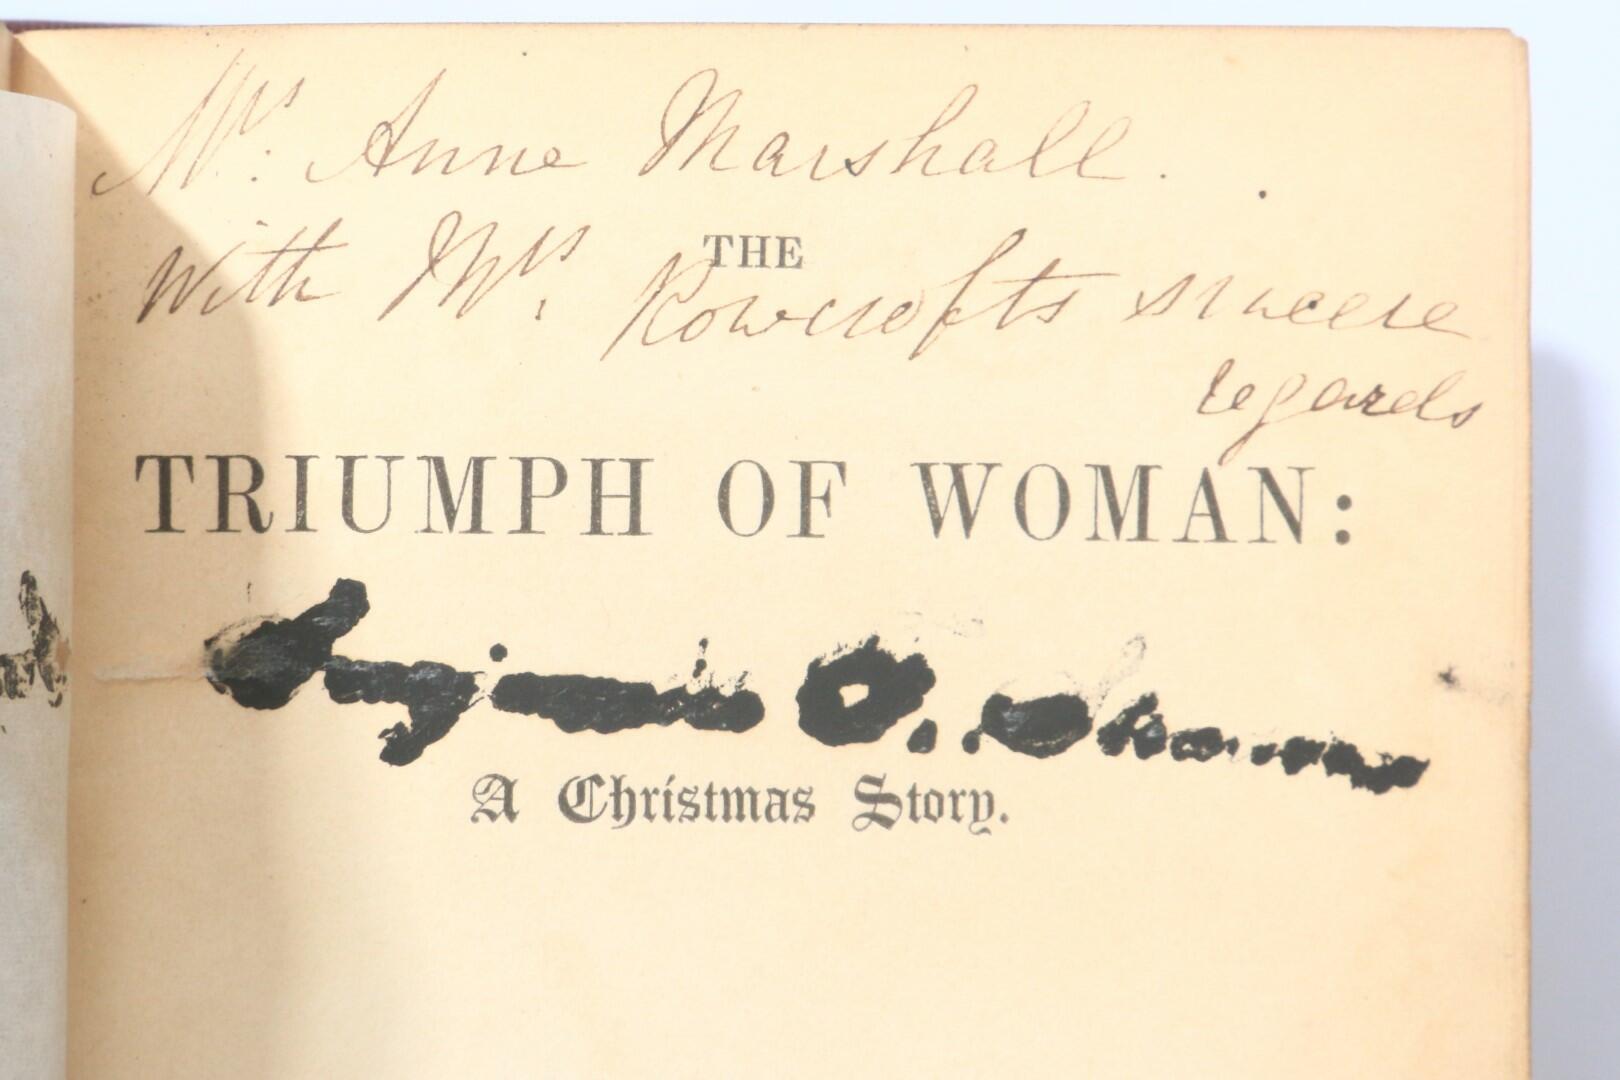 Mrs. Anne Marshall.
With Mrs. Rowcrofts sincere
regards
THE
TRIUMPH OF WOMAN:
A Christmas Story.